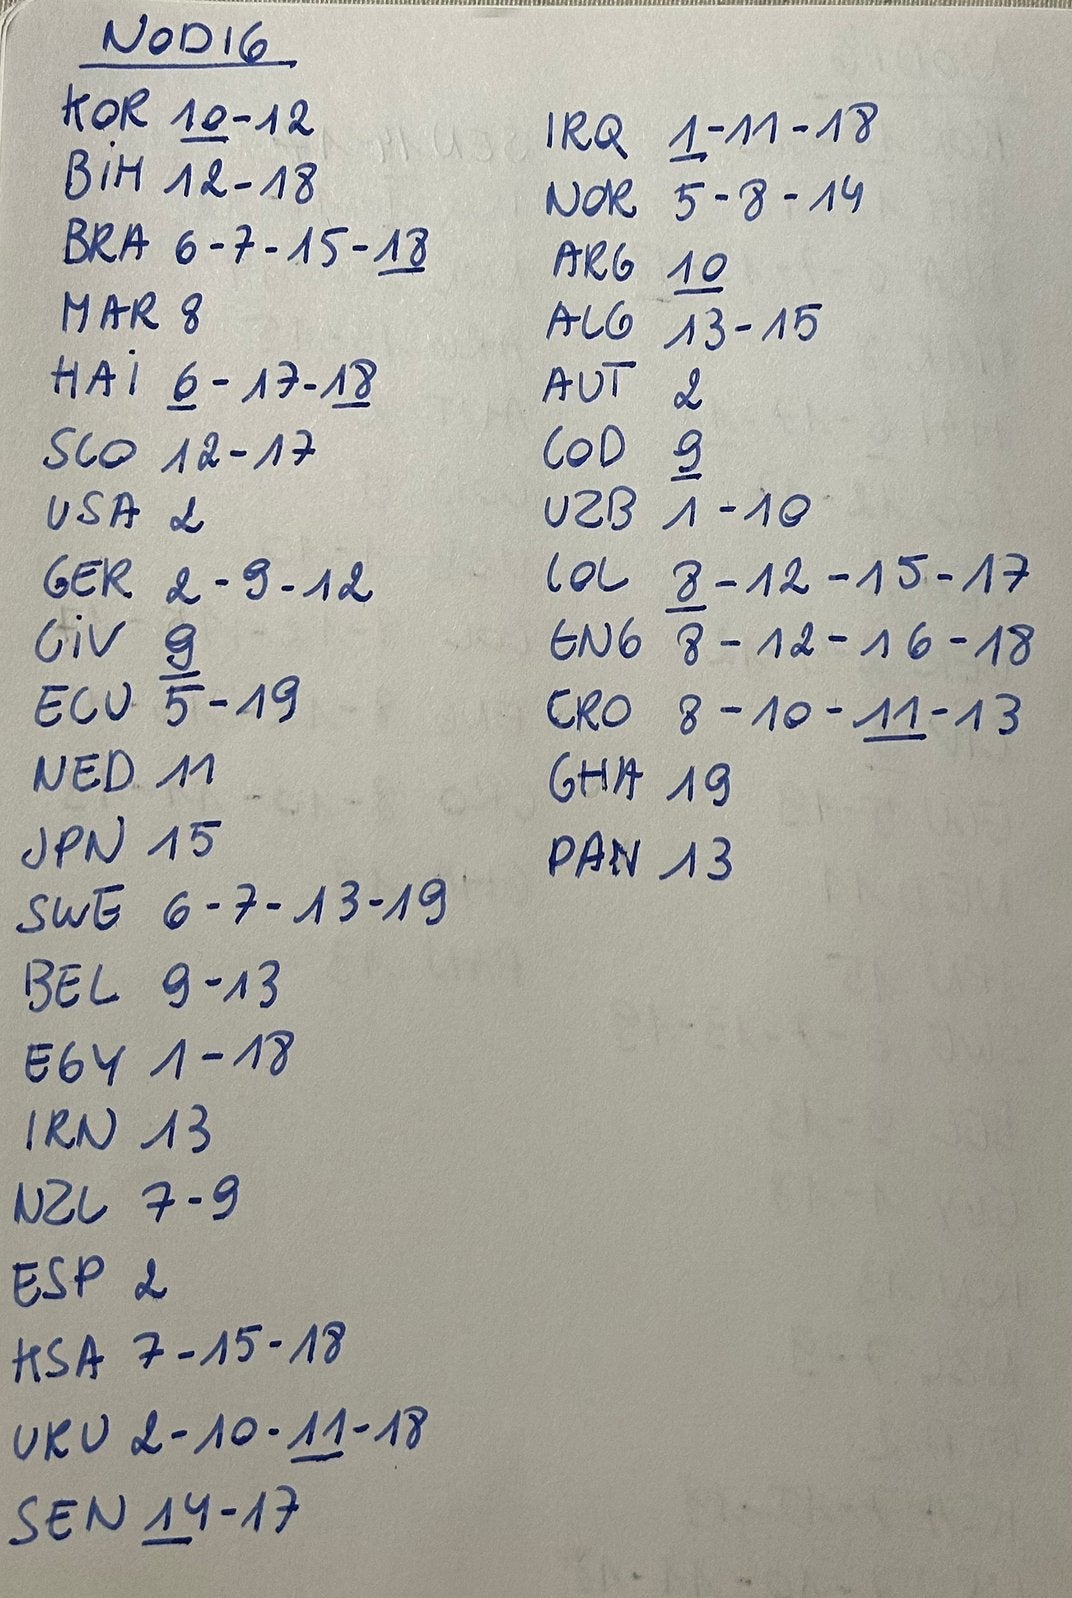 NOD16
KOR 10-12
BiH 12-18
BRA 6-7-15-18
MAR 8
HAi 6-17-18
SCO 12-17
USA 2
GER 2-9-12
CiV 9
ECU 5-19
NED 11
JPN 15
SWE 6-7-13-19
BEL 9-13
EGY 1-18
IRN 13
NZL 7-9
ESP 2
KSA 7-15-18
URU 2-10-11-18
SEN 14-17
IRQ 1-11-18
NOR 5-8-14
ARG 10
ALG 13-15
AUT 2
COD 9
UZB 1-10
COL 8-12-15-17
ENG 8-12-16-18
CRO 8-10-11-13
GHA 19
PAN 13